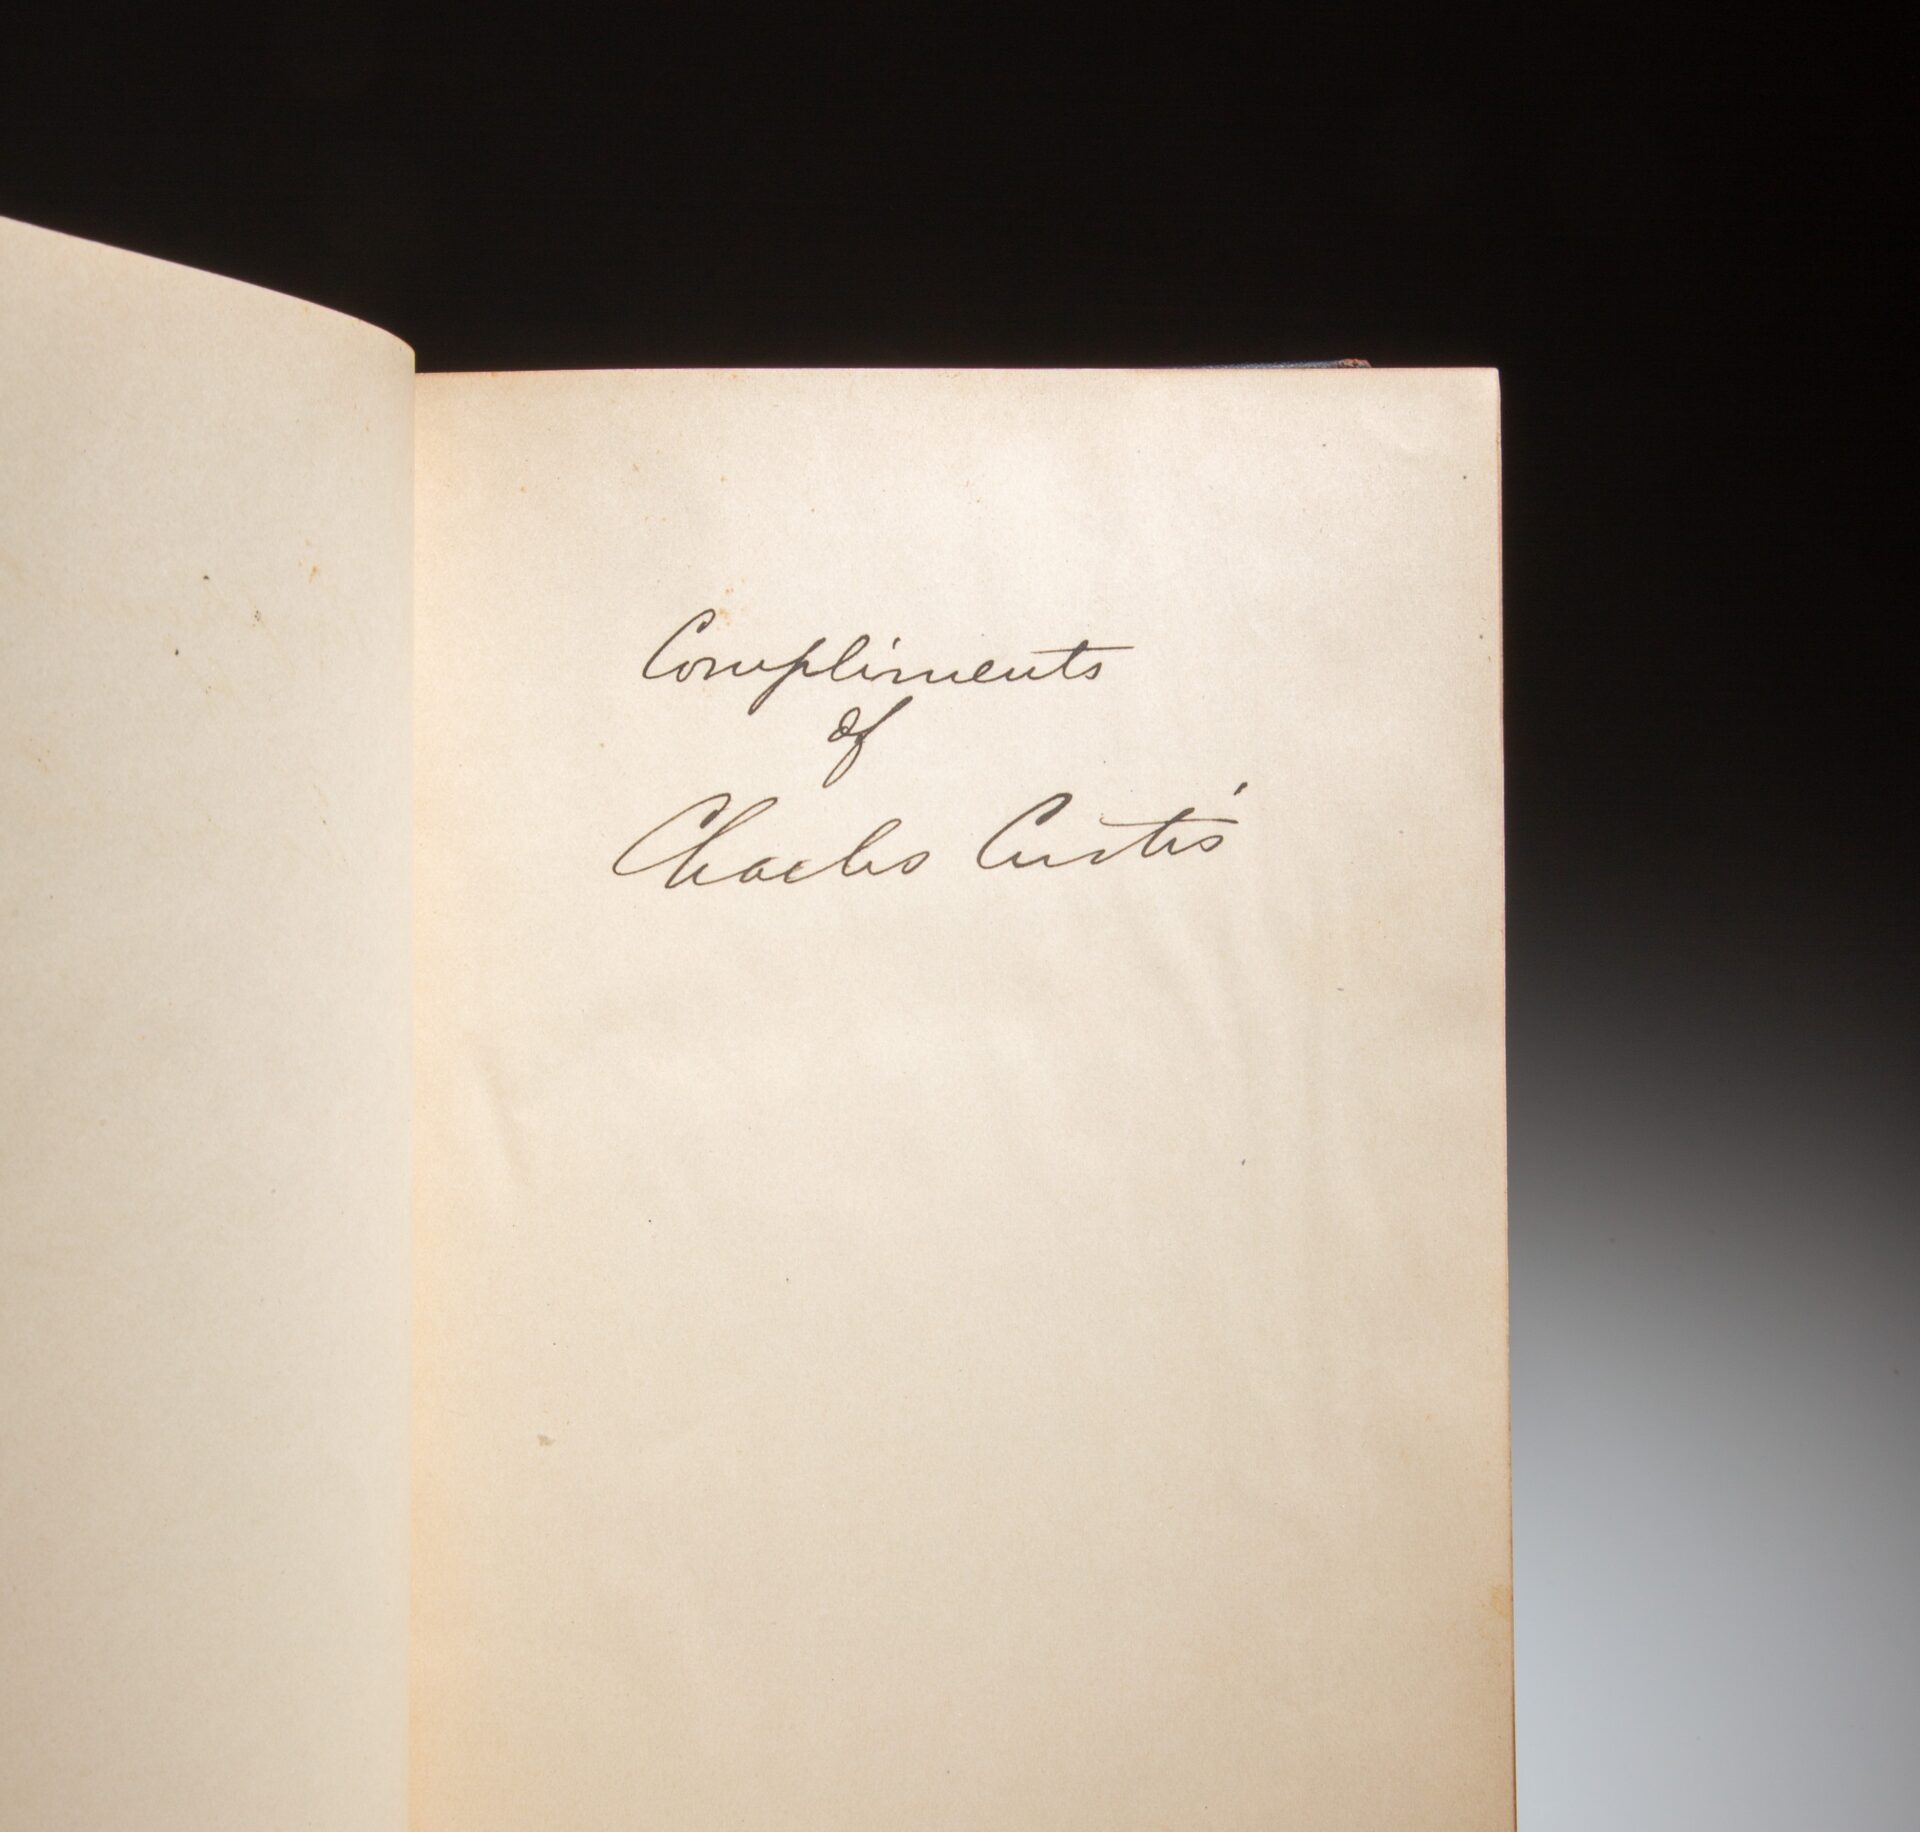 Compliments
of
Charles Curtis